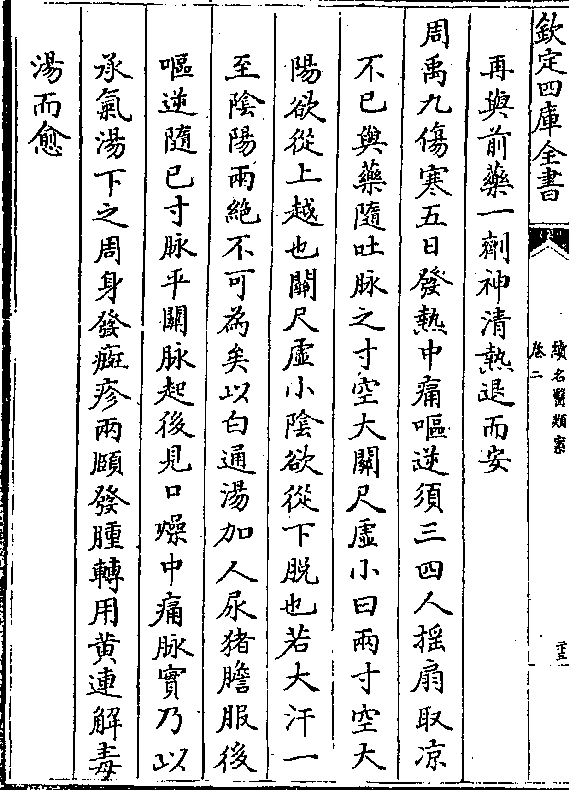 欽定四庫全書
續名醫類案
卷二
三三
再與前藥一劑神清熱退而安
周禹九傷寒五日發熱中痛嘔逆須三四人揺扇取凉
不已與藥隨吐脉之寸空大關尺虛小曰兩寸空大
陽欲從上越也關尺虛小陰欲從下脱也若大汗一
至陰陽兩絶不可為矣以白通湯加人尿猪膽服後
嘔逆隨已寸脉平關脉起後見口燥中痛脉實乃以
承氣湯下之周身發癍疹兩頤發腫轉用黄連解毒
湯而愈